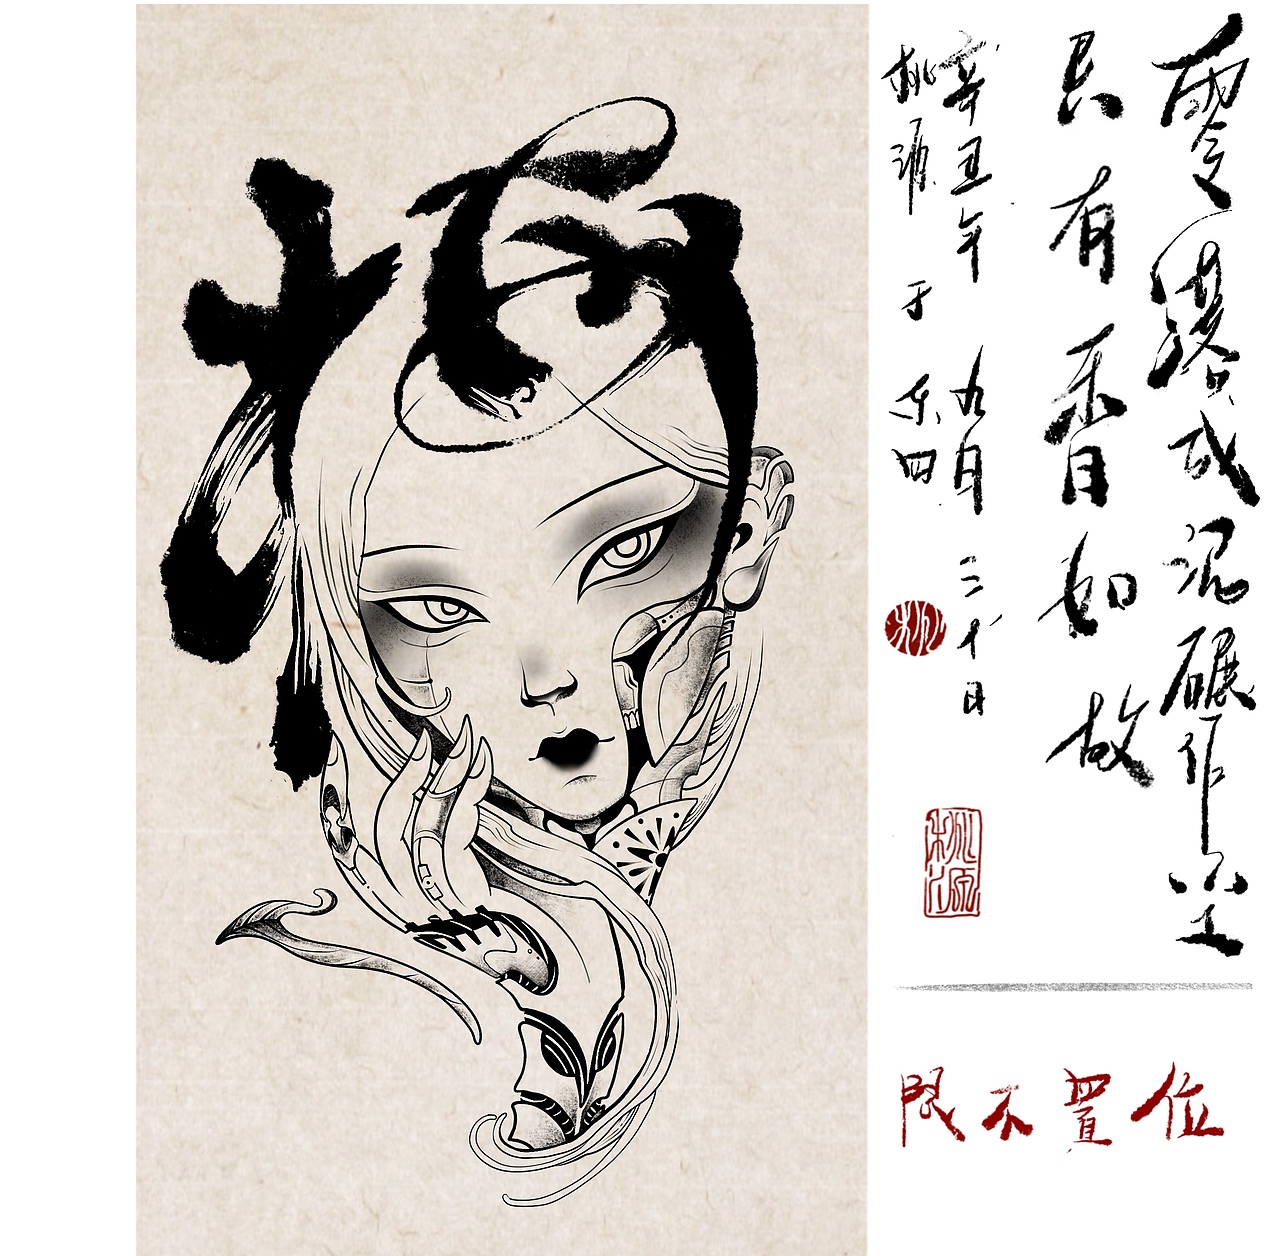 零落成泥碾作尘
只有香如故
辛丑年九月三十日
桃源于东四
桃
桃源
位置不限